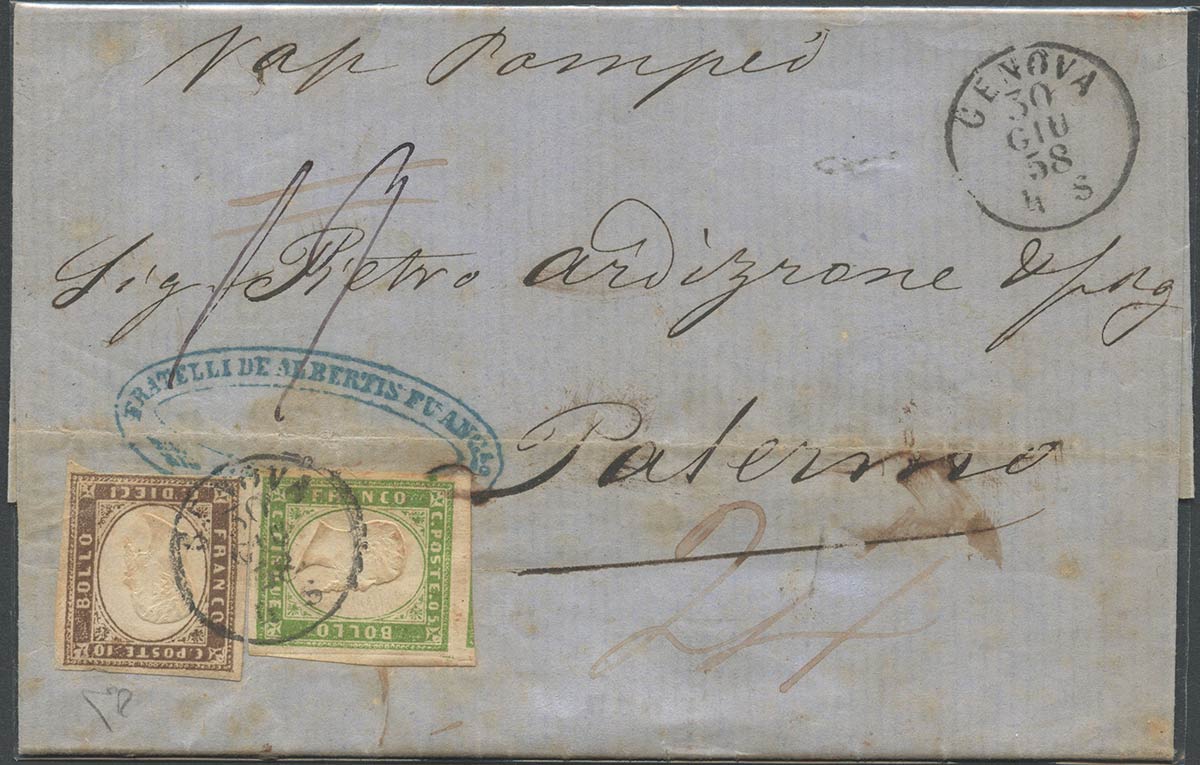 Vap Pompeo
GENOVA
30
GIU
58
4 S
Sig. Pietro Ardizzone
Palermo
FRATELLI DE ALBERTIS FU ANG
BOLLO
C. DIECI
FRANCO
C. POSTE 10
FRANCO
C. POSTE 05
BOLLO
CINQUE
24